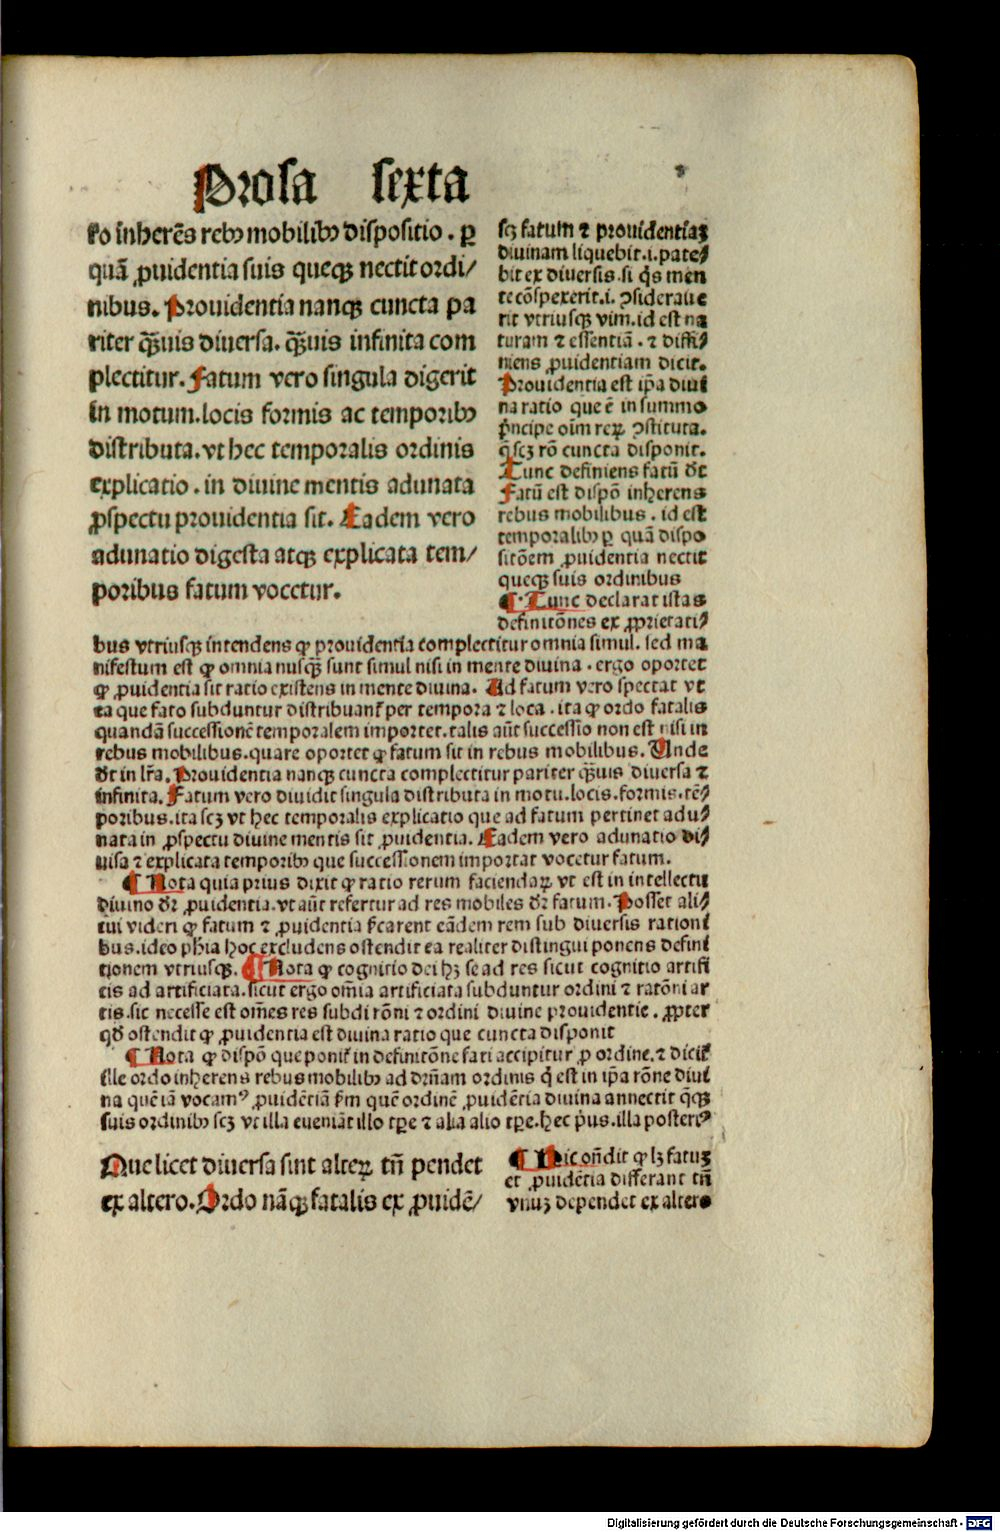 Prosa sexta
ro inherẽs rebꝰ mobilibꝰ dispositio. ꝑ
quã ꝓuidentia suis queqꝫ nectit ordi/
nibus. Prouidentia nanqꝫ cuncta pa
riter qꝫ̃uis diuersa. qꝫ̃uis infinita com
plectitur. Fatum vero singula digerit
in motum. locis formis ac temporibꝰ
distributa. vt hec temporalis ordinis
explicatio. in diuine mentis adunata
ꝓspectu prouidentia sit. Eadem vero
adunatio digesta atqꝫ explicata tem/
poribus fatum vocetur.
scꝫ fatum ⁊ prouidentiaꝫ
diuinam liquebit .i. pate/
bit ex diuersis. si q̃s men
te cõspexerit .i. ꝯsideraue
rit vtriusqꝫ vim. id est na
turam ⁊ essentiã. ⁊ diffi/
niens ꝓuidentiam dicit.
Prouidentia est ip̃a diui
na ratio que ẽ in summo
p̃ncipe oĩm reꝝ ꝯstituta.
q̃ scꝫ rõ cuncta disponit.
Tunc definiens fatũ d̃t
Fatũ est dispõ inherens
rebus mobilibus. id est
temporalibꝰ ꝑ quã dispo
sitõem ꝓuidentia nectit
queqꝫ suis ordinibus
¶ Tunc declarat istas
definitõnes ex ꝓprietati/
bus vtriusqꝫ intendens ꝙ prouidentia complectitur omnia simul. sed ma
nifestum est ꝙ omnia nusqꝫ̃ sunt simul nisi in mente diuina. ergo oportet
ꝙ ꝓuidentia sit ratio existens in mente diuina. Ad fatum vero spectat vt
ea que fato subduntur distribuant̃ per tempora ⁊ loca. ita ꝙ ordo fatalis
quandã successionẽ temporalem importet. talis aũt successio non est nisi in
rebus mobilibus. quare oportet ꝙ fatum sit in rebus mobilibus. Unde
d̃t in lr̃a. Prouidentia nanqꝫ cuncta complectitur pariter qꝫ̃uis diuersa ⁊
infinita. Fatum vero diuidit singula distributa in motu. locis. formis. tẽ/
poribus. ita scꝫ vt hec temporalis explicatio que ad fatum pertinet adu/
nata in ꝓspectu diuine mentis sit ꝓuidentia. Eadem vero adunatio di/
uisa ⁊ explicata temporibꝰ que successionem importat vocetur fatum.
¶ Nota quia prius dixit ꝙ ratio rerum faciendaꝝ vt est in intellectu
diuino d̃r ꝓuidentia. vt aũt refertur ad res mobiles d̃r fatum. Posset ali/
cui videri ꝙ fatum ⁊ ꝓuidentia p̃icarent eãdem rem sub diuersis rationi
bus. ideo ph̃ia hoc excludens ostendit ea realiter distingui ponens defini
tionem vtriusqꝫ. ¶ Nota ꝙ cognitio dei hꝫ se ad res sicut cognitio artifi
cis ad artificiata. sicut ergo om̃ia artificiata subduntur ordini ⁊ ratõni ar
tis. sic necesse est om̃es res subdi rõni ⁊ ordini diuine prouidentie. ꝓpter
qd̃ ostendit ꝙ ꝓuidentia est diuina ratio que cuncta disponit
¶ Nota ꝙ dispõ que ponit̃ in definitõne fati accipitur ꝓ ordine. ⁊ dicit̃
ille ordo inherens rebus mobilibꝰ ad dr̃nam ordinis q̃ est in ip̃a rõne diui
na quẽ iã vocamꝰ ꝓuidẽtiã ẜm quẽ ordinẽ ꝓuidẽtia diuina annectit q̃qꝫ
suis ordinibꝰ scꝫ vt illa eueniãt illo tꝑe ⁊ alia alio tꝑe. hec p̃us. illa posteriꝰ
Que licet diuersa sint alteꝝ tñ pendet
ex altero. Ordo nãqꝫ fatalis ex ꝓuidẽ/
¶ Hic oñdit ꝙ lꝫ fatuꝫ
et ꝓuidẽtia differant tñ
vnuꝫ dependet ex altero
Digitalisierung gefördert durch die Deutsche Forschungsgemeinschaft - DFG